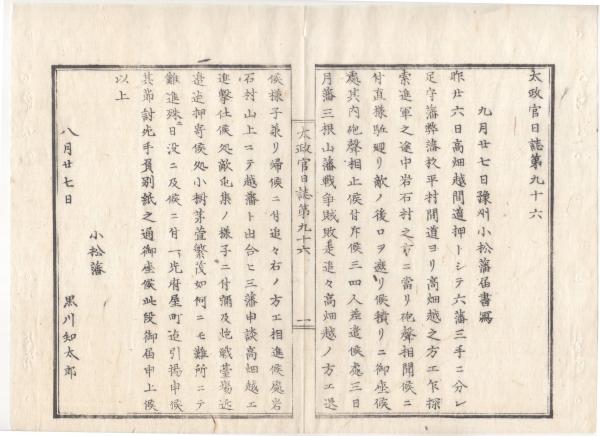 太政官日誌第九十六
九月廿七日豫州小松藩届書寫
昨廿六日高畑越間道押トシテ六藩三手ニ分レ
足守藩弊藩杦平村間道ヨリ高畑越之方エ乍探
索進軍之途中岩石村之方ニ當リ砲聲相聞候ニ
付直様馳廻リ敵ノ後ロヲ遮リ候積リニ御座候
處其内砲聲相止候付斥候三四人差遣候處三日
月藩三根山藩戰爭賊敗走追々高畑越ノ方エ退
太政官日誌第九十六
一
候様子承リ帰候ニ付追々右ノ方エ相進候處岩
石村山上ニテ越藩ト出合ヒ三藩申談高畑越エ
進擊仕候処敵屯集ノ様子ニ付彌及炮戰臺場近
邉迠押寄候処小樹茅萱繁茂如何ニモ難所ニテ
難進殊日没ニ及候ニ付一ト先府屋町迠引揚申候
其節討死手負別紙之通御座候此段御届申上候
以上
八月廿七日
小松藩
黒川知太郎